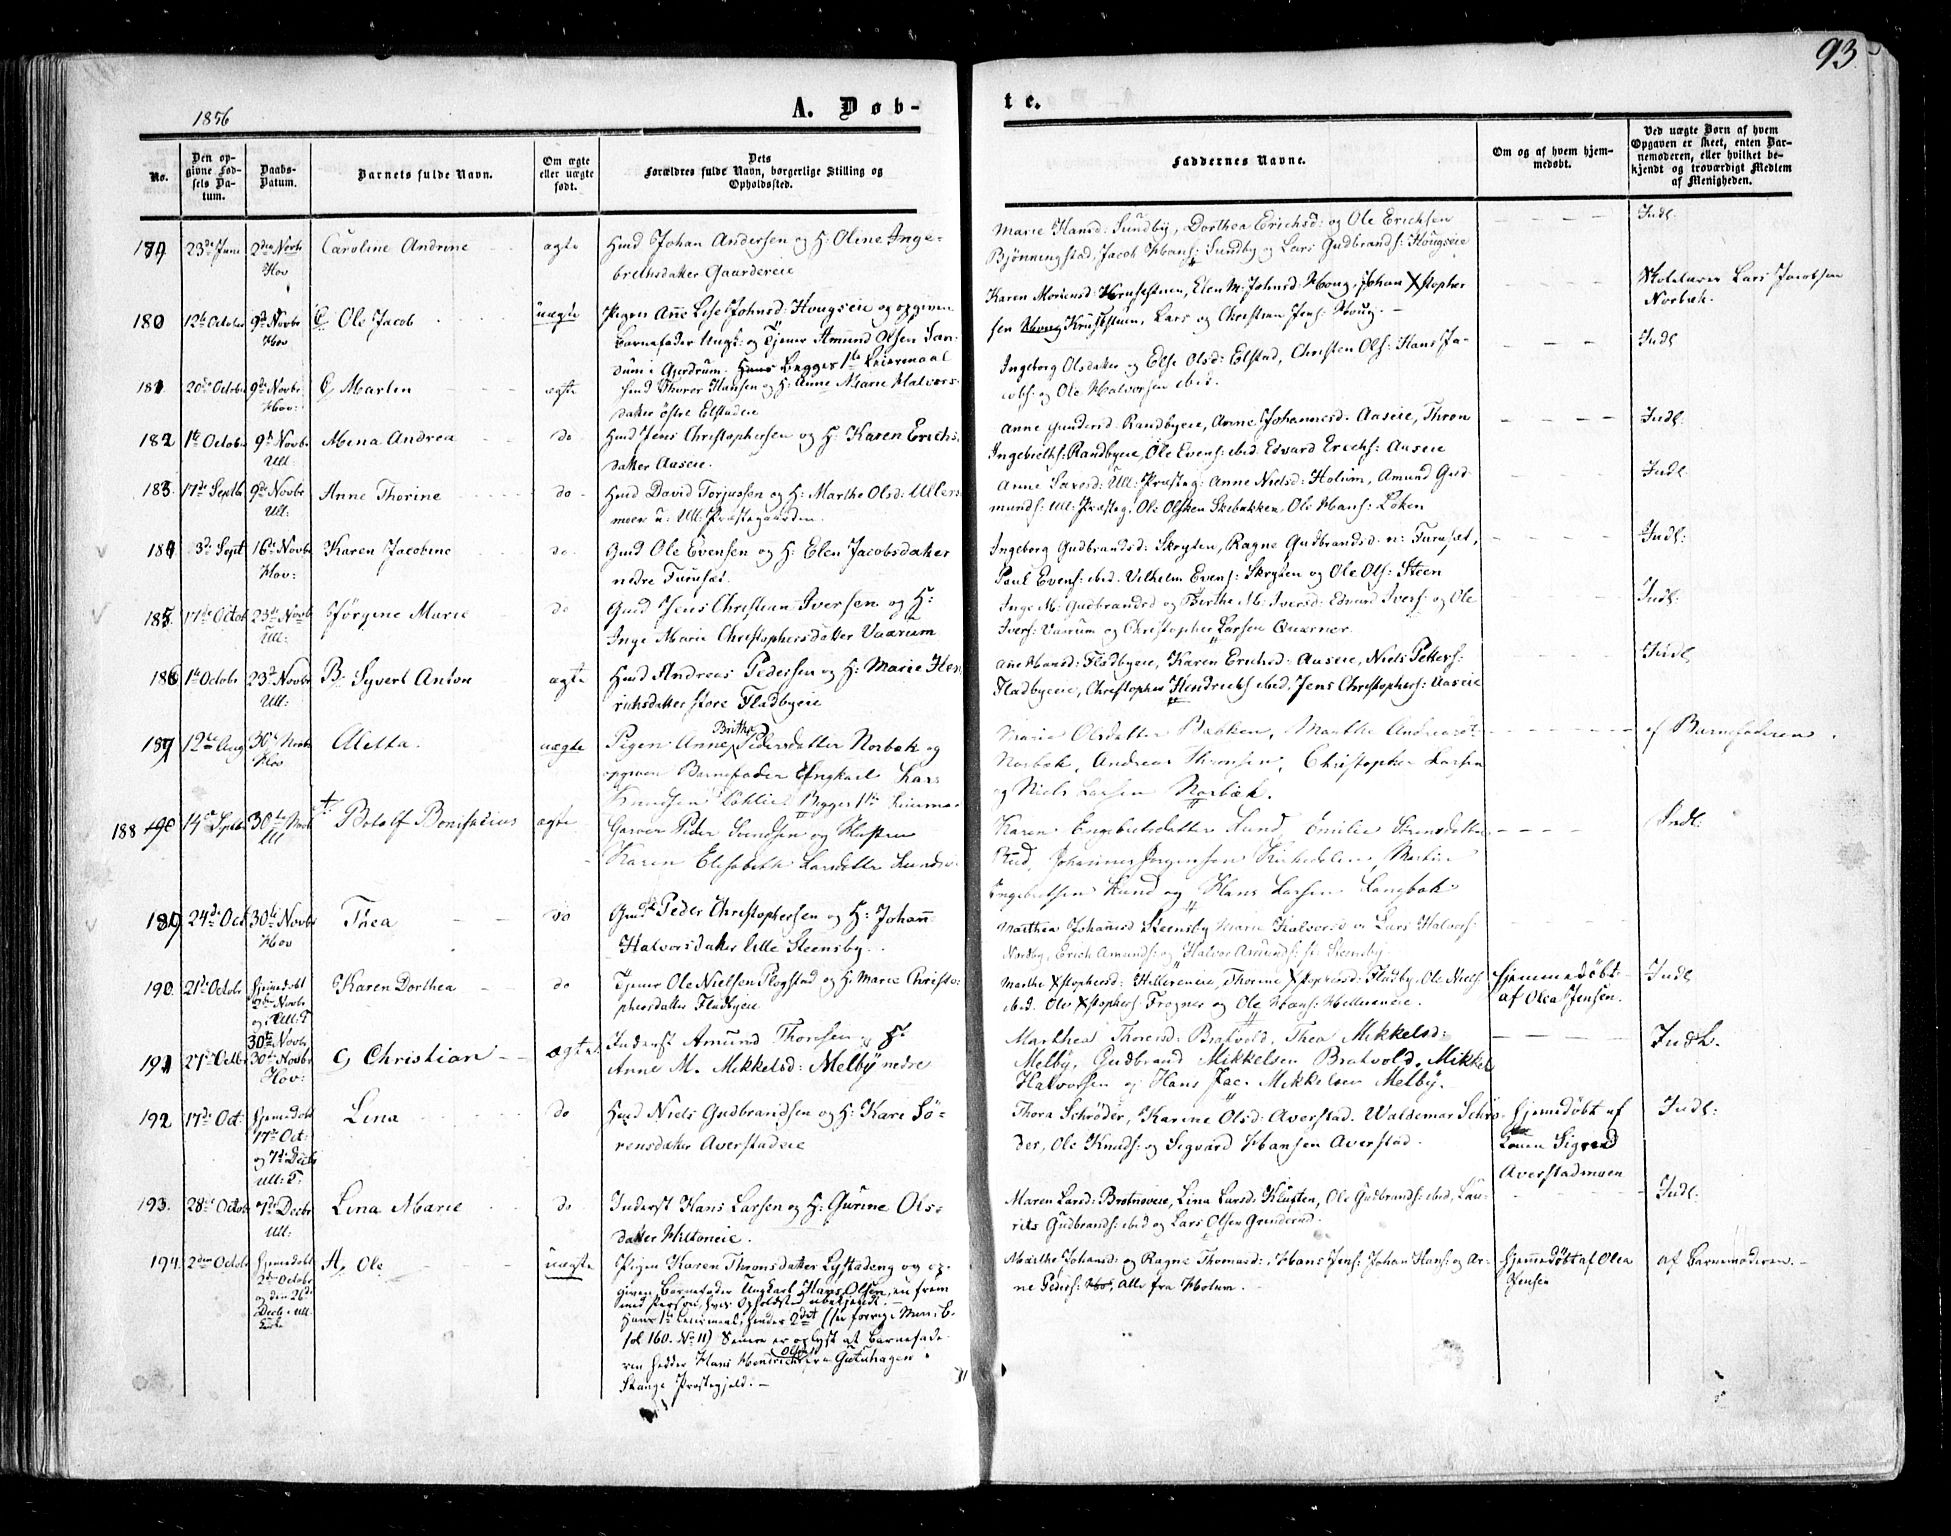 93
1856
A. Døb-
te.
No.
Den op-
givne Fød-
sels Da-
tum.
Daabs-
Datum.
Barnets fulde Navn.
Om ægte
eller uægte
født.
Dets
Forældres fulde Navn, borgerlige Stilling og
Opholdssted.
Faddernes Navne.
Om og af hvem hjem-
medøbt.
Ved uægte Børn af hvem
Opgaven er skeet, enten Bar-
nemoderen, eller hvilket be-
kjendt og troværdigt Medlem
af Menigheden.
179 23de Juni 2den Novbr Hov Caroline Andrine ægte
Huusd Johan Andersen og H: Oline Inge-
bretsdatter Gaardereie
Marie Hansd: Sundby, Dorthea Erichsd: og Ole Erichsen
Bjønningstad, Jacob Hans: Sundby og Lars Gudbrands: Hougseie
Indl.
180 12te October 9de Novbr Hov Ole Jacob uægte
Pigen Anne Lise Johnsd: Hougseie og opgiven
Barnefader Ungk: og Tjener Amund Olsen San-
dum i Gjerdrum. Begges 1ste Leiermaal
Karen Mortensd: Kruststuen, Elen M: Johnsd: Houg, Johan Xstopher
sen Kruststuen, Lars og Christian Jens: Houg.
Skolelærer Lars Jacobsen
Norbæk.
181 20de Octobr 9de Novbr Hov: Martin ægte
Huusd Thoror Hansen og H: Anne Marie Halvors-
datter østre Elstadeie
Ingeborg Olsdatter og Else Olsd: Elstad, Christen Ols: Hans Ja-
cobs: og Ole Halvorsen ibid.
Indl
182 1ste Octobr 9de Novbr Ull: Mina Andrea do
Huusd Jens Christophersen og H: Karen Erichs-
datter Aaseie.
Anne Gundersd: Randbyeie, Anne Johannesd: Aaseie, Thron
Ingebreths: Randbyeie, Ole Evens: ibid. Edvard Erichs: Aaseie
Indl:
183 17de Septbr 9de Novbr Ull: Anne Thorine do
Huusd David Torjussen og H: Marthe Olsd: Ullers-
moen u: Ull: Præstegaarden.
Anne Larsd: Ull: Præsteg: Anne Nielsd: Holum, Amund Gud
munds: Ull: Præsteg. Ole Olsen Skebækken, Ole Hans: Løken
Indl
184 3de Sept 16de Novbr Hov: Karen Jacobine do
Gmd Ole Evensen og H: Elen Jacobsdatter
nedre Furuset.
Ingeborg Gudbrandsd: Skryten, Ragne Gudbrandsd: n: Furuset,
Poul Evens: ibid. Vilhelm Evens: Skryten og Ole Ols: Steen
Indl:
185 17de Octob 23de Novbr Ull: Jørgine Marie do
Gmd Jens Christian Iversen og H:
Inge Marie Christophersdatter Vaarum
Inge M: Gudbrandsd og Birthe M: Iversd: Edvard Ivers: og Ole
Ivers: Vaarum og Christopher Larsen Quærner.
Indl:
186 1ste Octobr 23de Novbr Ull: Syvert Anton ægte
Huusd Andreas Pedersen og H: Marie Hen
richsdatter store Fladbyeie
Ane Hansd: Fladbyeie, Karen Erichsd: Aaseie, Niels Petters:
Fladbyeie, Christopher Hendrichs ibid, Jens Christophers: Aaseie
Indl
187 12te Aug 30te Novbr Hov Aletta. uægte
Pigen Anne Birthe Pedersdatter Norbæk og
opgiven Barnefader Ungkarl Lars
Knudsen Begges 1ste Leierma-
Marie Olsdatter Bakken, Marthe Andreasd:
Norbæk, Andreas Thronsen, Christopher Larsen
og Niels Larsen Norbæk.
af Barnefaderen.
188 190 14de Septbr 30te Novbr Ull Botolf Bonifacius ægte
Garver Peder Svendsen og Hustru
Karen Elisabeth Larsdatter Lund
Karen Engebretsdatter Lund, Emilie Sørensdatter
Rud, Johannes Jørgensen Kirkedelen, Martin
Ingebretsen Lund og Hans Larsen Langbæk
Indl:
189 24de Oct 30te Novbr Hov Thea do
Gmd Peder Christophersen og H: Johann
Halvorsdatter lille Steensby.
Marthea Johannesd Steensby Marie Halvorsd og Lars Halvors:
Nordby, Erich Amunds: og Halvor Amunds: Steensby.
190 21de Octobr hjemedøbt 2den Novbr og i Ull: K 30te Novbr Karen Dorthea do
Tjener Ole Nielsen Plogstad og H: Marie Christo-
phersdatter Fladbyeie
Marthe Xstophersd: Hellereneie, Thorine Xstophersd: Fladby, Ole Niels:
ibid. Ole Xstophers: Frogner og Ole Hans: Hellereneie.
hjemmedøbt
af Olea Jensen.
Indl
191 27de Octbr 30te Novbr Hov: Christian ægte
Inderst Amund Thoresen og H:
Anne M. Mikkelsd: Melby nedre
Marthea Thoresd: Bratvold, Thea Mikkelsd:
Melby, Gudbrand Mikkelsen Bratvold, Mikkel
Halvorsen og Hans Jac. Mikkelsen Melby.
Indl.
192 17de Oct: hjemedøbt 17de Oct: og 7de Decbr Ull: K. Lina do
Huusd Niels Gudbrandsen og H: Kari Sø-
rensdatter Averstadeie
Thora Schrøder, Karine Olsd: Averstad. Waldemar Schrø-
der, Ole Knuds: og Sigvard Hansen Averstad.
hjemedøbt af
Konen Sigrid
Averstadmoen
Indl:
193. 28de Octobr 7de Decbr Ull: Lina Marie do
Inderst Hans Larsen og H: Gurine Ols-
datter Hiltoneie.
Maren Larsd: Brotnoveie, Lina Larsd: Kluften, Ole Gudbrands: ibid, Lau-
rits Gudbrands: ibid og Lars Olsen Grinderud.
Indl.
194. 2den Octobr hjemedøbt 2de Octobr og den 26de Decb i Ull: Kirke Ole uægte
Pigen Karen Thronsdatter Lystadeng og op-
given Barnefader Ungkarl Hans Olsen, en frem
med Person, hvis Opholdsted ubekjendt.
Hans 1ste Leiermaal, hendes 2det (see forrige Min: B.
fol 160. No 11) Senere er oplyst at Barnefade-
ren hedder Hans Hendrich Olsen Gutuhagen i
Skauge Præstegjeld.
Marthe Johansd: og Ragne Thomasd:, Hans Jens: Johan Hans: og Ar-
ne Peders: alle fra Holum.
hjemmedøbt af Olea
Jensen
af Barnemoderen.